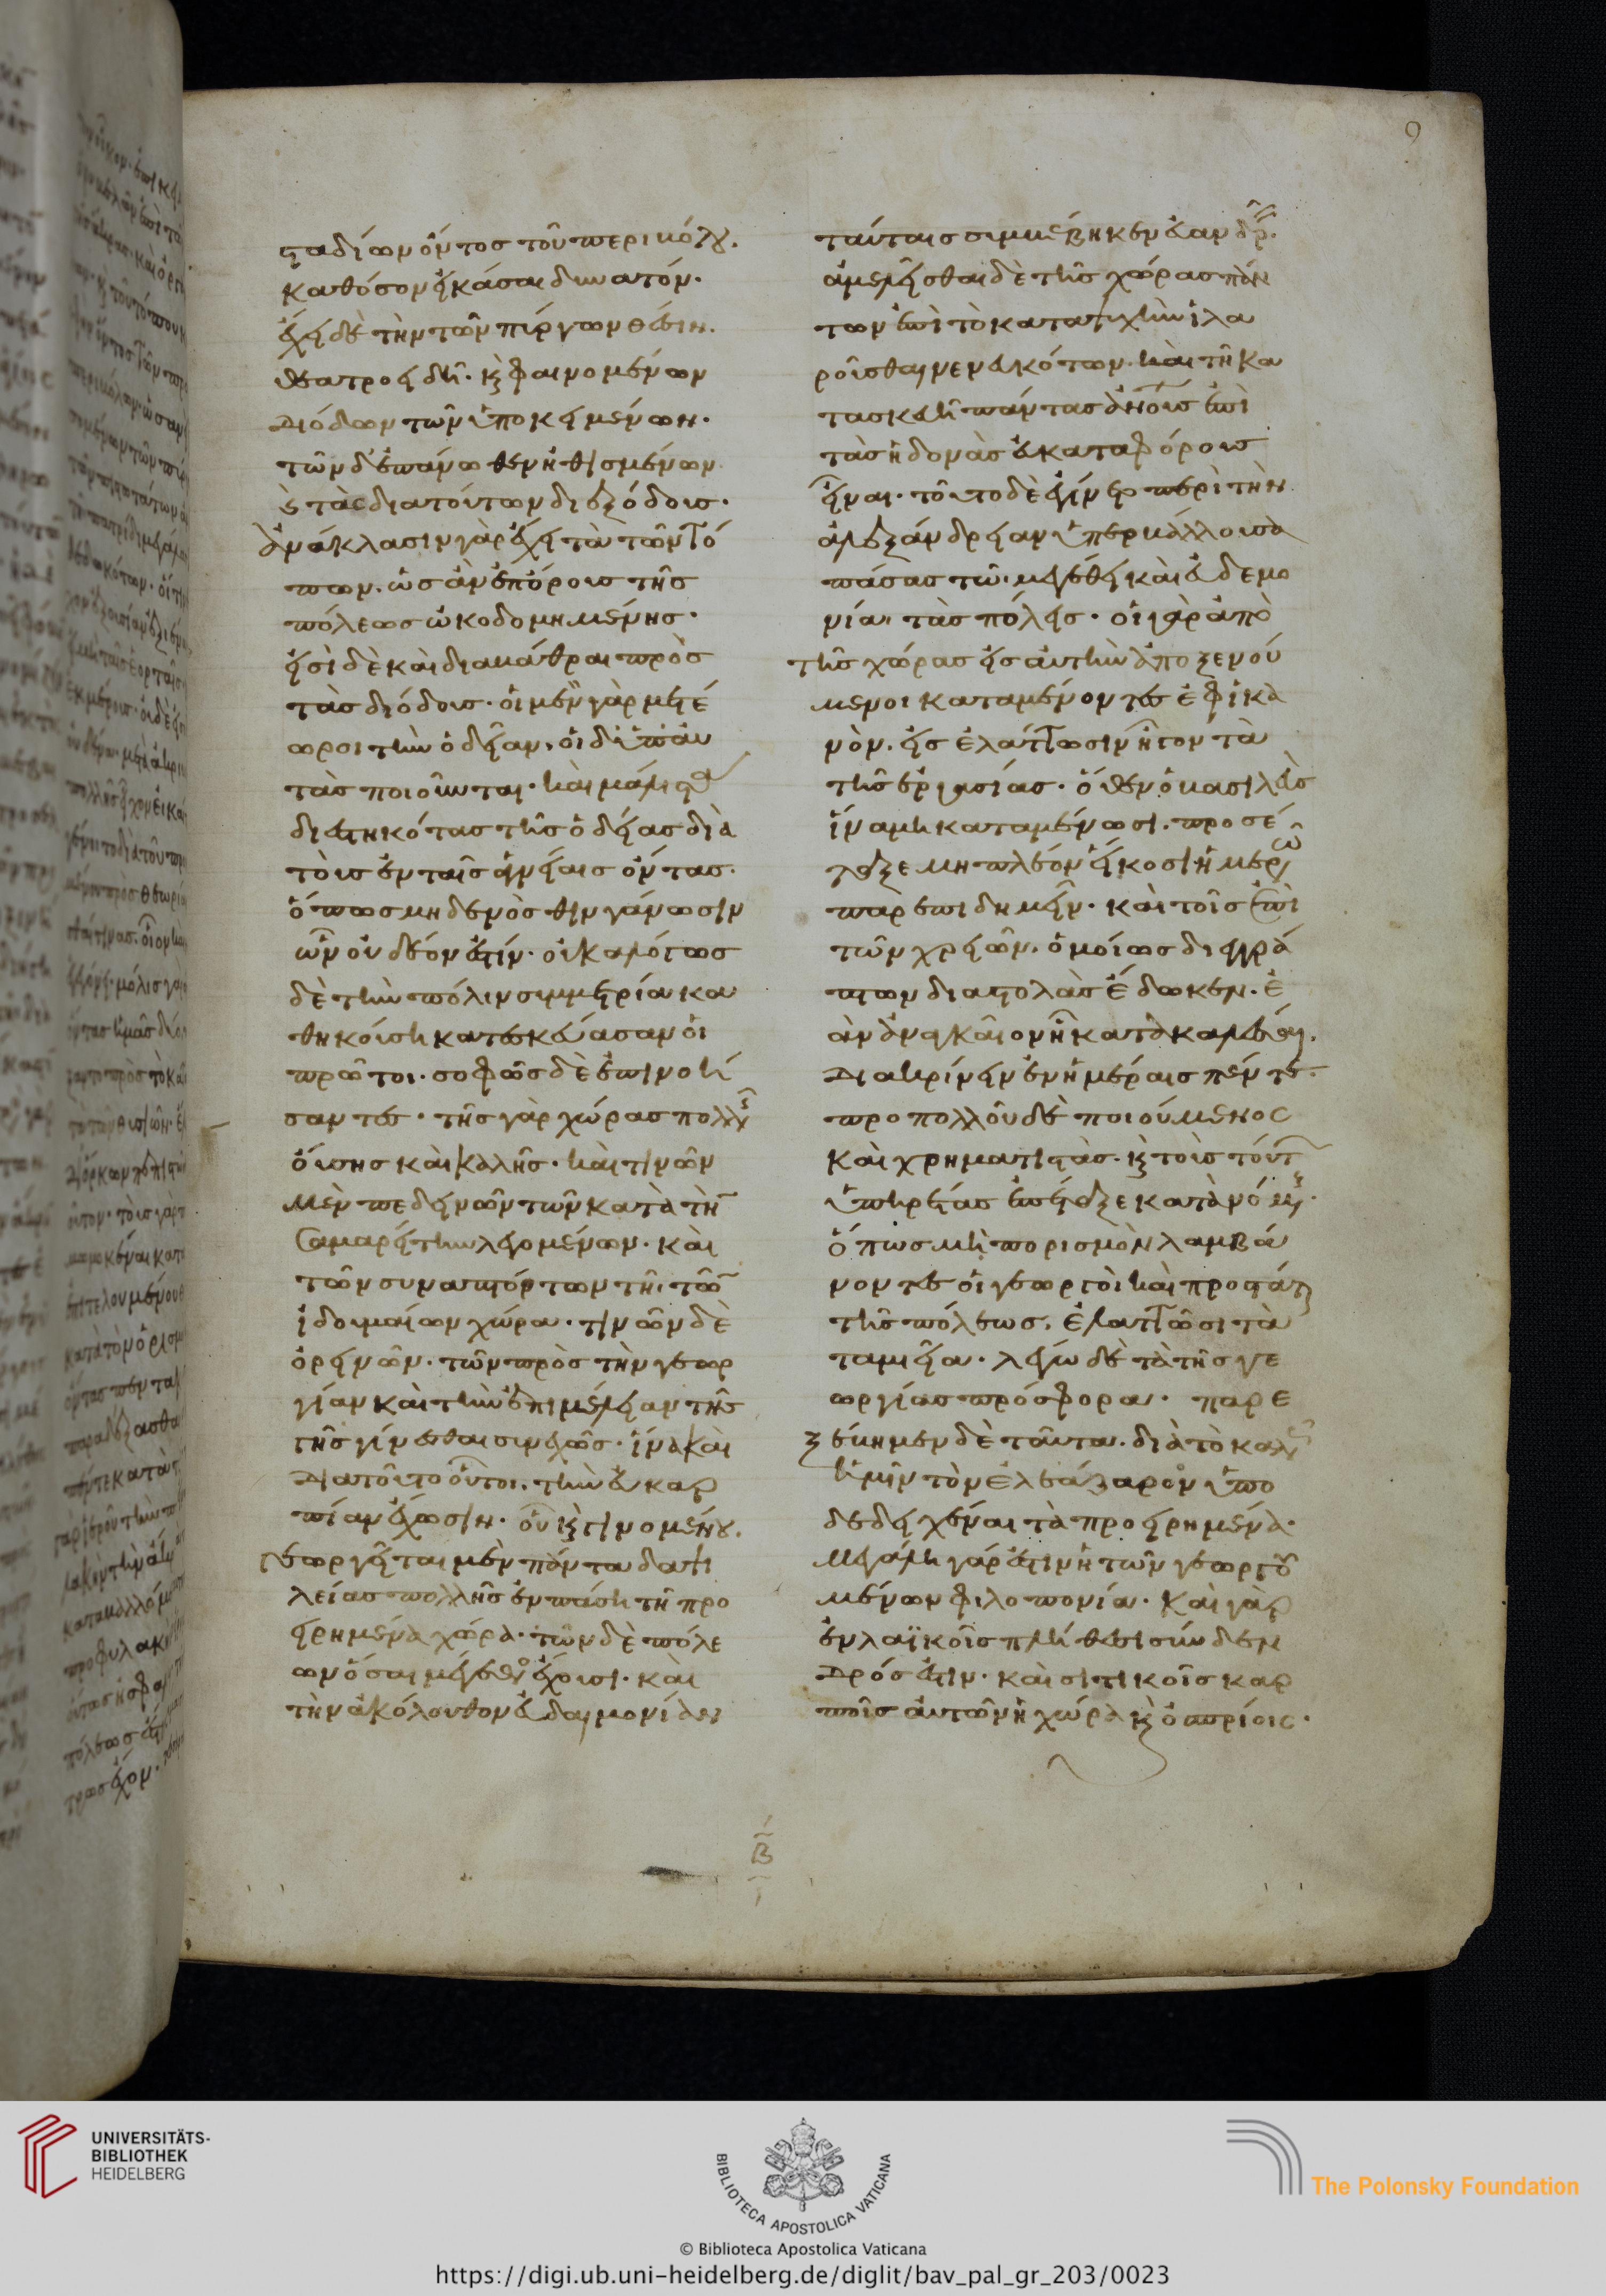 σταδίων ὄντος τοῦ περιβόλου.
καθόσον εἰκάσαι δυνατόν.
ἔχει δὲ τὴν τῶν πύργων θέσιν.
θεατροειδῆ. καὶ φαινομένων
διόδων τῶν ὑποκειμένων.
τῶν δ' ἐπάνωθεν ἠθισμένων
ἐς τὰς διὰ τούτων διεξόδους.
ἀνάκλασιν γὰρ ἔχει τὰ τῶν τό
πων. ὡς ἂν ἐπ' ὄρους τῆς
πόλεως ὠκοδομημένης.
εἰσὶ δὲ καὶ διαβάθραι πρὸς
τὰς διόδους. οἱ μὲν γὰρ μετέ
ωροι τὴν ὁδείαν. οἱ δ' ὑπ' αὐ
τὰς ποιοῦνται. καὶ μάλιστα
διεστηκότας τῆς ὁδείας διὰ
τοὺς ἐν ταῖς ἁγνείαις ὄντας.
ὅπως μηδενὸς θιγγάνωσιν
ὧν οὐ δέον ἐστίν. οὐκ ἀλόγως
δὲ τὴν πόλιν συμμετρία κα
θηκούση κατεσκεύασαν οἱ
πρῶτοι. σοφῶς δὲ ἐπινοή
σαντες. τῆς γὰρ χώρας πολλῆς
οὔσης καὶ καλῆς. καὶ τινῶν
μὲν πεδεινῶν τῶν κατὰ τὴν
Σαμαρείτην λεγομένων. καὶ
τῶν συναπτόντων τῆ τῶν
ἰδουμαίων χώρα. τινῶν δὲ
ὀρεινῶν. τῶν πρὸς τὴν γεωρ
γίαν καὶ τὴν ἐπιμέλειαν τῆς
γῆς γίνεσθαι συνεχῶς. ἵνα καὶ
διὰ τοῦτο οὗτοι. τὴν εὐκαρ
πίαν ἔχωσιν. οὗ καὶ γινομένου.
γεωργεῖται μὲν πάντα δαψι
λείας πολλῆς ἐν πάση τῆ προ
ειρημένα χώρα. τῶν δὲ πόλε
ων ὅσαι μέγεθος ἔχουσι. καὶ
τὴν ἀκόλουθον εὐδαιμονίαν
ταύταις συμβέβηκεν εὐανδρεῖν.
ἀμελεῖσθαι δὲ τῆς χώρας πάν
των ἐπὶ τὸ κατὰ ψυχὴν ἱλα
ροῦσθαι νενευκότων. καὶ τῆ κα
τασκευῆ πάντας ἀνθρώπους ἐπὶ
τὰς ἡδονὰς εὐκαταφόρους
εἶναι. τοῦτο δὲ ἐγίνετο περὶ τὴν
ἀλεξάνδρειαν ὑπερβάλλουσα
πάσας τῶ μεγέθει καὶ εὐδεμο
νία τὰς πόλεις. οἱ γὰρ ἀπὸ
τῆς χώρας εἰς αὐτὴν ἀποξενού
μενοι καταμένοντες ἐφ' ἱκα
νὸν. εἰς ἐλάττωσιν ἦγον τὰ
τῆς ἐργασίας. ὅθεν ὁ βασιλεὺς
ἵνα μὴ καταμένωσι. προσέ
ταξε μὴ πλέον εἴκοσι ἡμερῶν
παρεπιδημεῖν. καὶ τοῖς ἐπὶ
τῶν χρειῶν. ὁμοίως δι' ἐγγρά
πτων διαστολὰς ἔδωκεν. ἐ
ὰν ἀναγκαῖον ἦ κατακαλέσαι.
διακρίνειν ἐν ἡμέραις πέντε.
προ πολλοῦ δὲ ποιούμενος
καὶ χρηματιστὰς. καὶ τοὺς τούτων
ὑπηρέτας ἐπέταξε κατὰ νόμους.
ὅπως μὴ πορισμὸν λαμβά
νοντες οἱ γεωργοὶ καὶ προστάται
τῆς πόλεως. ἐλαττῶσι τὰ
ταμιεῖα. λέγω δὲ τὰ τῆς γε
ωργίας πρόσφορα. παρε
ξέβημεν δὲ ταῦτα. διὰ τὸ καλῶς
ἡμῖν τὸν ἐλεάζαρον ὑπο
δεδειχέναι τὰ προειρημένα.
μεγάλη γάρ ἐστιν ἡ τῶν γεωργου
μένων φιλοπονία. καὶ γὰρ
ἐνλαϊκοῖς πλήθεσι σύνδεν
δρός ἐστιν. καὶ σιτικοῖς καρ
ποῖς αὐτῶν ἡ χώρα καὶ ὀσπρίοις.
β
9
UNIVERSITÄTS-
BIBLIOTHEK
HEIDELBERG
BIBLIOTECA APOSTOLICA VATICANA
The Polonsky Foundation
© Biblioteca Apostolica Vaticana
https://digi.ub.uni-heidelberg.de/diglit/bav_pal_gr_203/0023